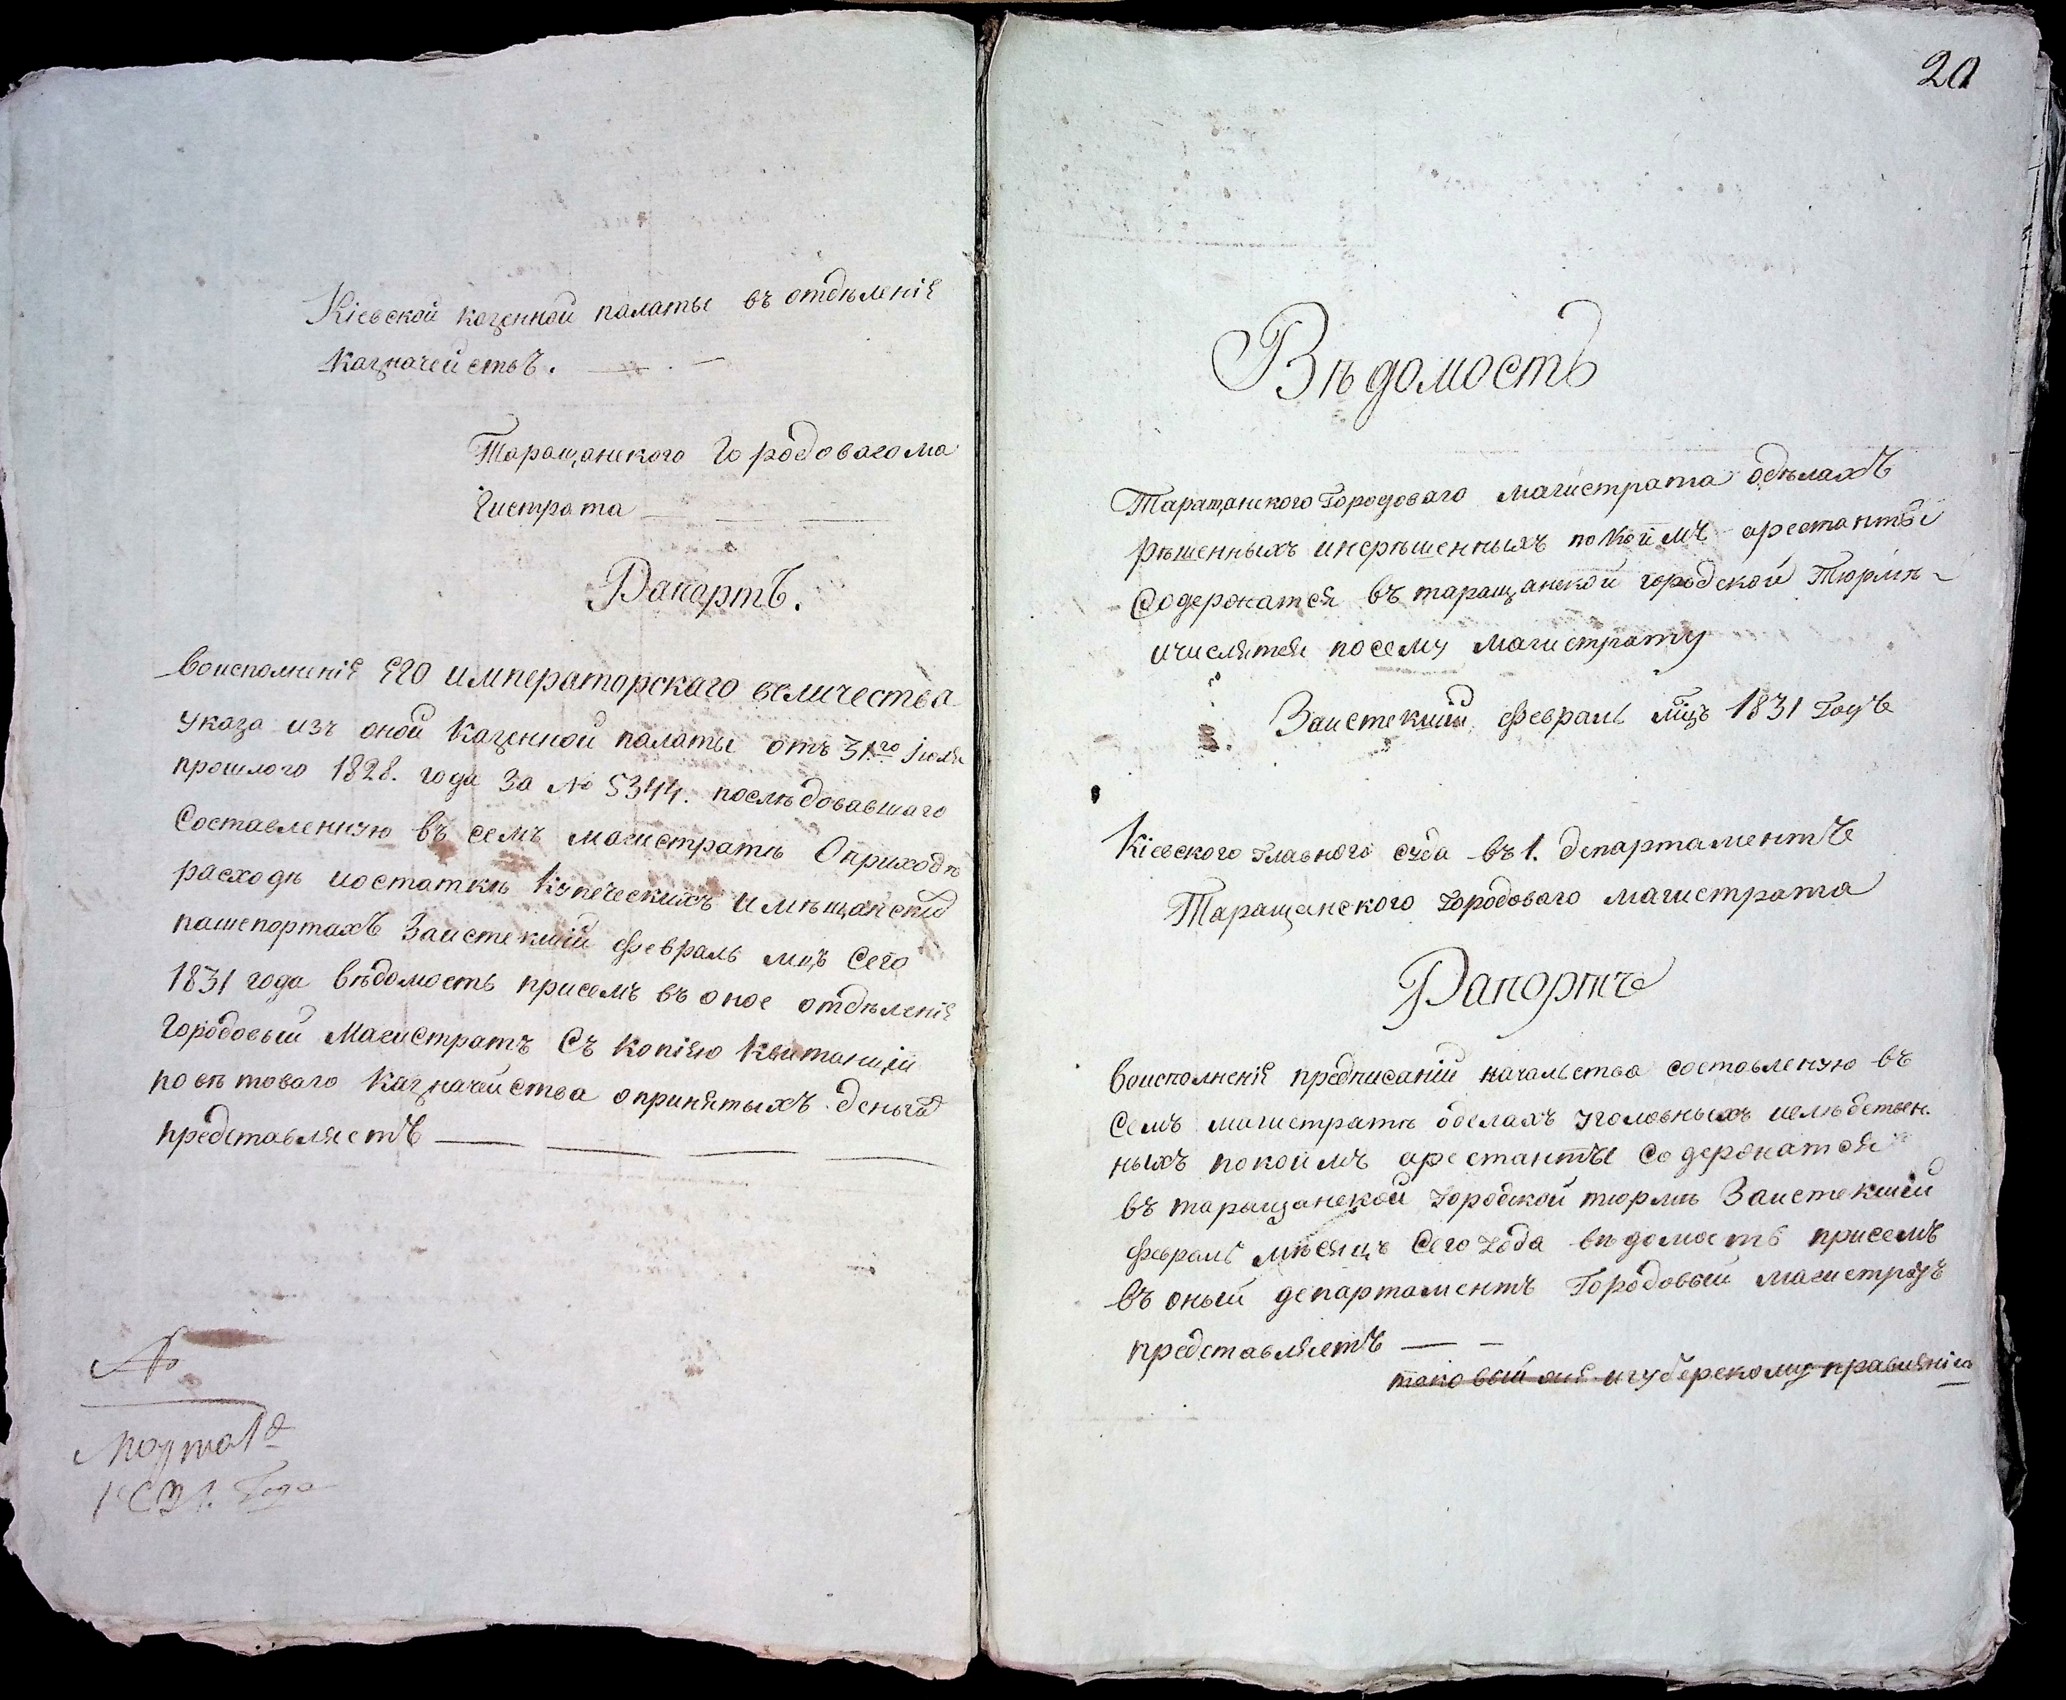 Кіевской казенной палаты въ отдѣленіе
Казначействъ.
Таращанского Городовагома
гистрата
Рапортъ.
Воисполненіе Его императорскаго величества
указа изъ оной Казенной палаты отъ 31го Іюля
прошлого 1828. года За № 5344. послѣдовавшаго
Составленную въ семъ магистратѣ Оприходѣ
расходѣ иостаткѣ Купеческихъ имѣщански
пашепортахъ Заистекшій февраль мцъ Сего
1831 года вѣдомость присемъ въ оное отдѣленіе
Городовый Магистратъ Съ копіею Квитанціи
повѣтоваго Казначейства опринятыхъ деньга
представляетъ
№
Марта 1 д
1831. Года
20
Вѣдомость
Таращанского Городоваго магистрата одѣлахъ
рѣшенныхъ инерѣшенныхъ покоимъ арестанты
Содержатся въ таращанской городской Тюрмѣ
ичислятся посему магистрату
Заистекшій февраль мцъ 1831 Годъ
Кіевского Главного суда въ 1. департаментъ
Таращанского городоваго магистрата
Рапортъ
Воисполненіе предписаній начальства составленую въ
Семъ магистратѣ оделахъ уголовныхъ ислѣдствен.
ныхъ покоимъ арестанты содержатся
въ таращанской городской тюрмѣ Заистекшій
февраль мѣсяцъ Сего года вѣдомость присемъ
въ оный департаментъ Городовый магистратъ
представляетъ
таковый оне игуберскому правленію